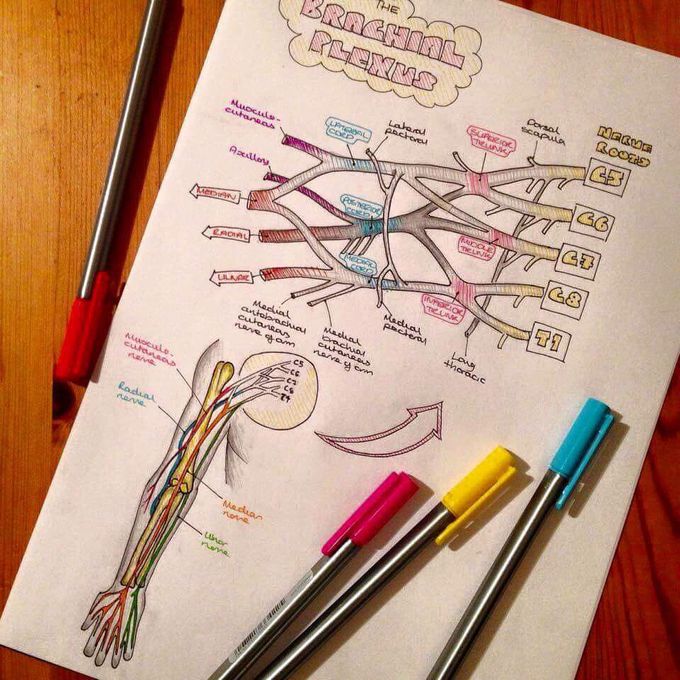 THE
BRACHIAL
PLEXUS
Musculo-
cutaneas
Axillary
LATERAL
CORD
Lateral
pectoral
SUPERIOR
TRUNK
Dorsal
scapula
NERVE
ROOTS
C5
C6
C7
C8
T1
MEDIAN
RADIAL
ULNAR
POSTERIOR
CORD
MEDIAL
CORD
MIDDLE
TRUNK
INFERIOR
TRUNK
Medial
antobrachial
cutaneas
nerve of arm
Medial
brachial
cutaneas
nerve of arm
Medial
pectoral
Long
thoracic
Musculo-
cutaneas
nerve
Radial
nerve
C5
C6
C7
C8
Median
nerve
Ulnar
nerve